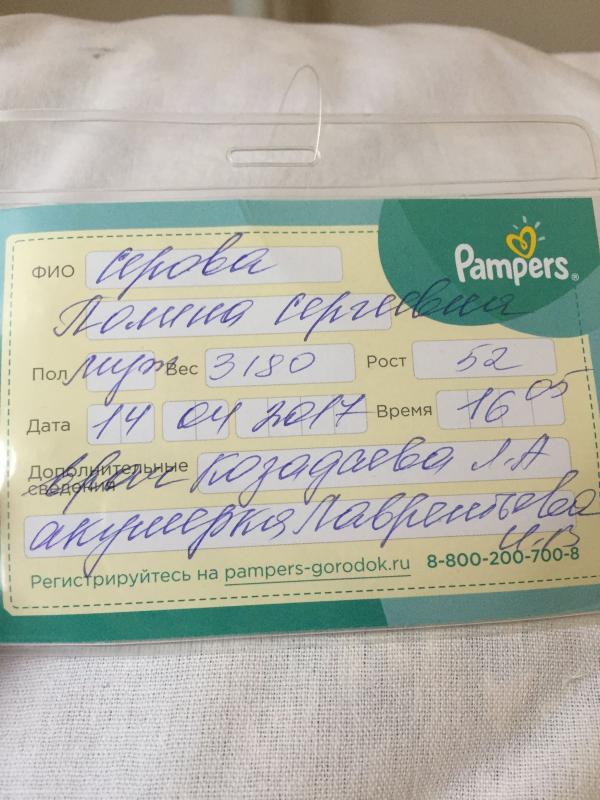 Pampers®
ФИО Серова
Полина Сергеевна
Пол муж Вес 3180 Рост 52
Дата 14 04 2017 Время 16 05
Дополнительные сведения врач Козадаева Л.А
акушерка Лаврентьева
И.В
Регистрируйтесь на pampers-gorodok.ru 8-800-200-700-8